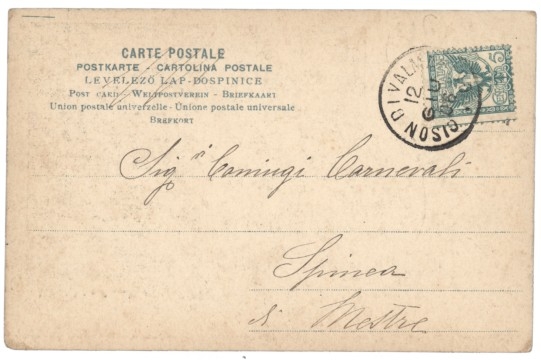 CARTE POSTALE
POSTKARTE - CARTOLINA POSTALE
LEVELEZŐ LAP-DOSPINICE
POST CARD - WELTPOSTVEREIN - BRIEFKAART
Union postale universelle - Unione postale universale
BREFKORT
CISON DI VALM
12
GIU
Sig.ri Comingi Carnevali
Spinea
di Mestre